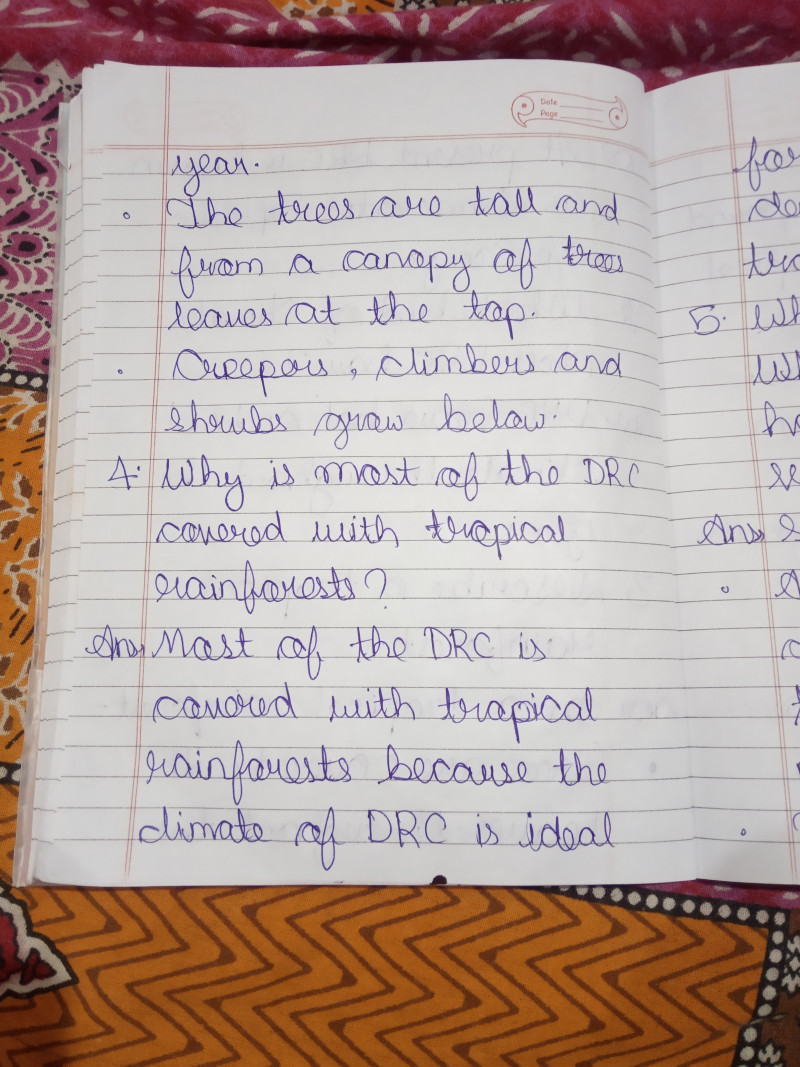 Date
Page
year.
• The trees are tall and
from a canopy of trees
leaves at the top.
• Creepers, climbers and
shrubs grow below.
4. Why is most of the DRC
covered with tropical
rainforests?
Ans Most of the DRC is
covered with tropical
rainforests because the
climate of DRC is ideal
for
5. Wh
Ans